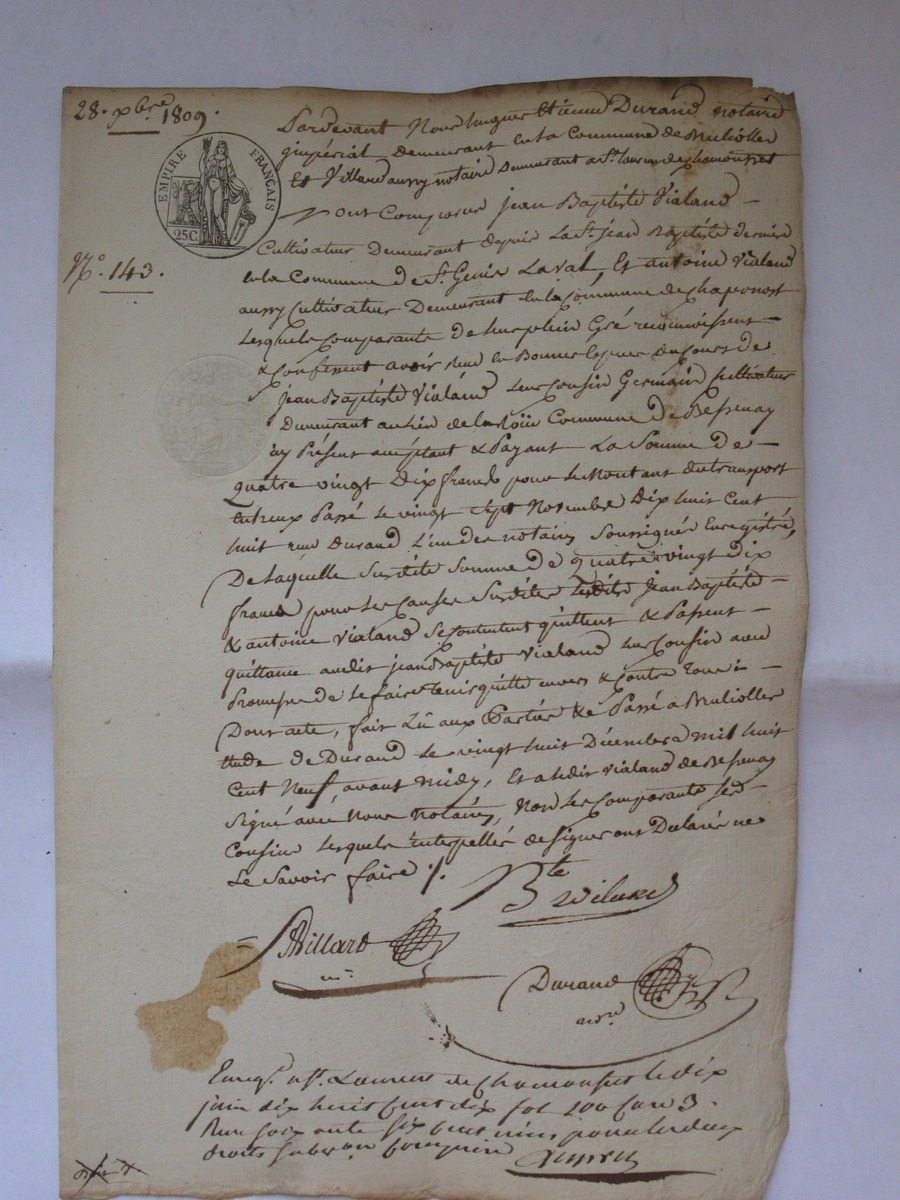 28. xbre 1809.
EMPIRE FRANÇAIS
25C
N° 143.
Pardevant Nous hugues Etienne Durand notaire
impérial Demeurant en la Commune de
Et Villard aussy notaire Demeurant a St. Laurent de chamousset
Sont Comparus jean Baptiste Vialand
Cultivateur Demeurant depuis La St. jean Baptiste derniere
en la Commune de St. Genis Laval, Et antoine Vialand
aussy Cultivateur Demeurant En la Commune de Chaponost
Lesquels Comparants de leur plein Gré reconnoissent
& Confessent avoir Reçu en Bonnes Espèces du Cours de
jean Baptiste Vialand Leur Cousin Germain Cultivateur
Demeurant au Lieu de Commune De Bessenay
icy Présent acceptant & Payant La Somme De
Quatre vingt Dix francs pour Le Montant du transport
entreux Passé Le vingt Sept Novembre Dix huit Cent
huit reçu Durand L'un des notaires Soussignés Enregistré,
De Laquelle Susdite Somme De quatre vingt dix
francs pour Les Causes Susdites Lesdits Jean Baptiste
& antoine Vialand Se Contentent quittent & Passent
quittance audit jean Baptiste Vialand Leur Cousin avec
Promesse de Le faire tenir quitte envers & Contre Tous
Dont acte, fait Lû aux Parties & Passé a
Etude de Durand Le vingt huit Décembre Mil huit
Cent Neuf, avant midy, Et a Ledit Vialand de Bessenay
Signé avec Nous Notaires, Non Les Comparants Ses
Cousins Lesquels interpellés de Signer ont Déclarés ne
Le Savoir faire ./.
Bte
Villard
Durand
nore
Enregt. a St. Laurent de Chamousset le dix
juin dix huit Cent dix fol 100 Case 3.
Reçu soixante six Centimes pour les deux
droits